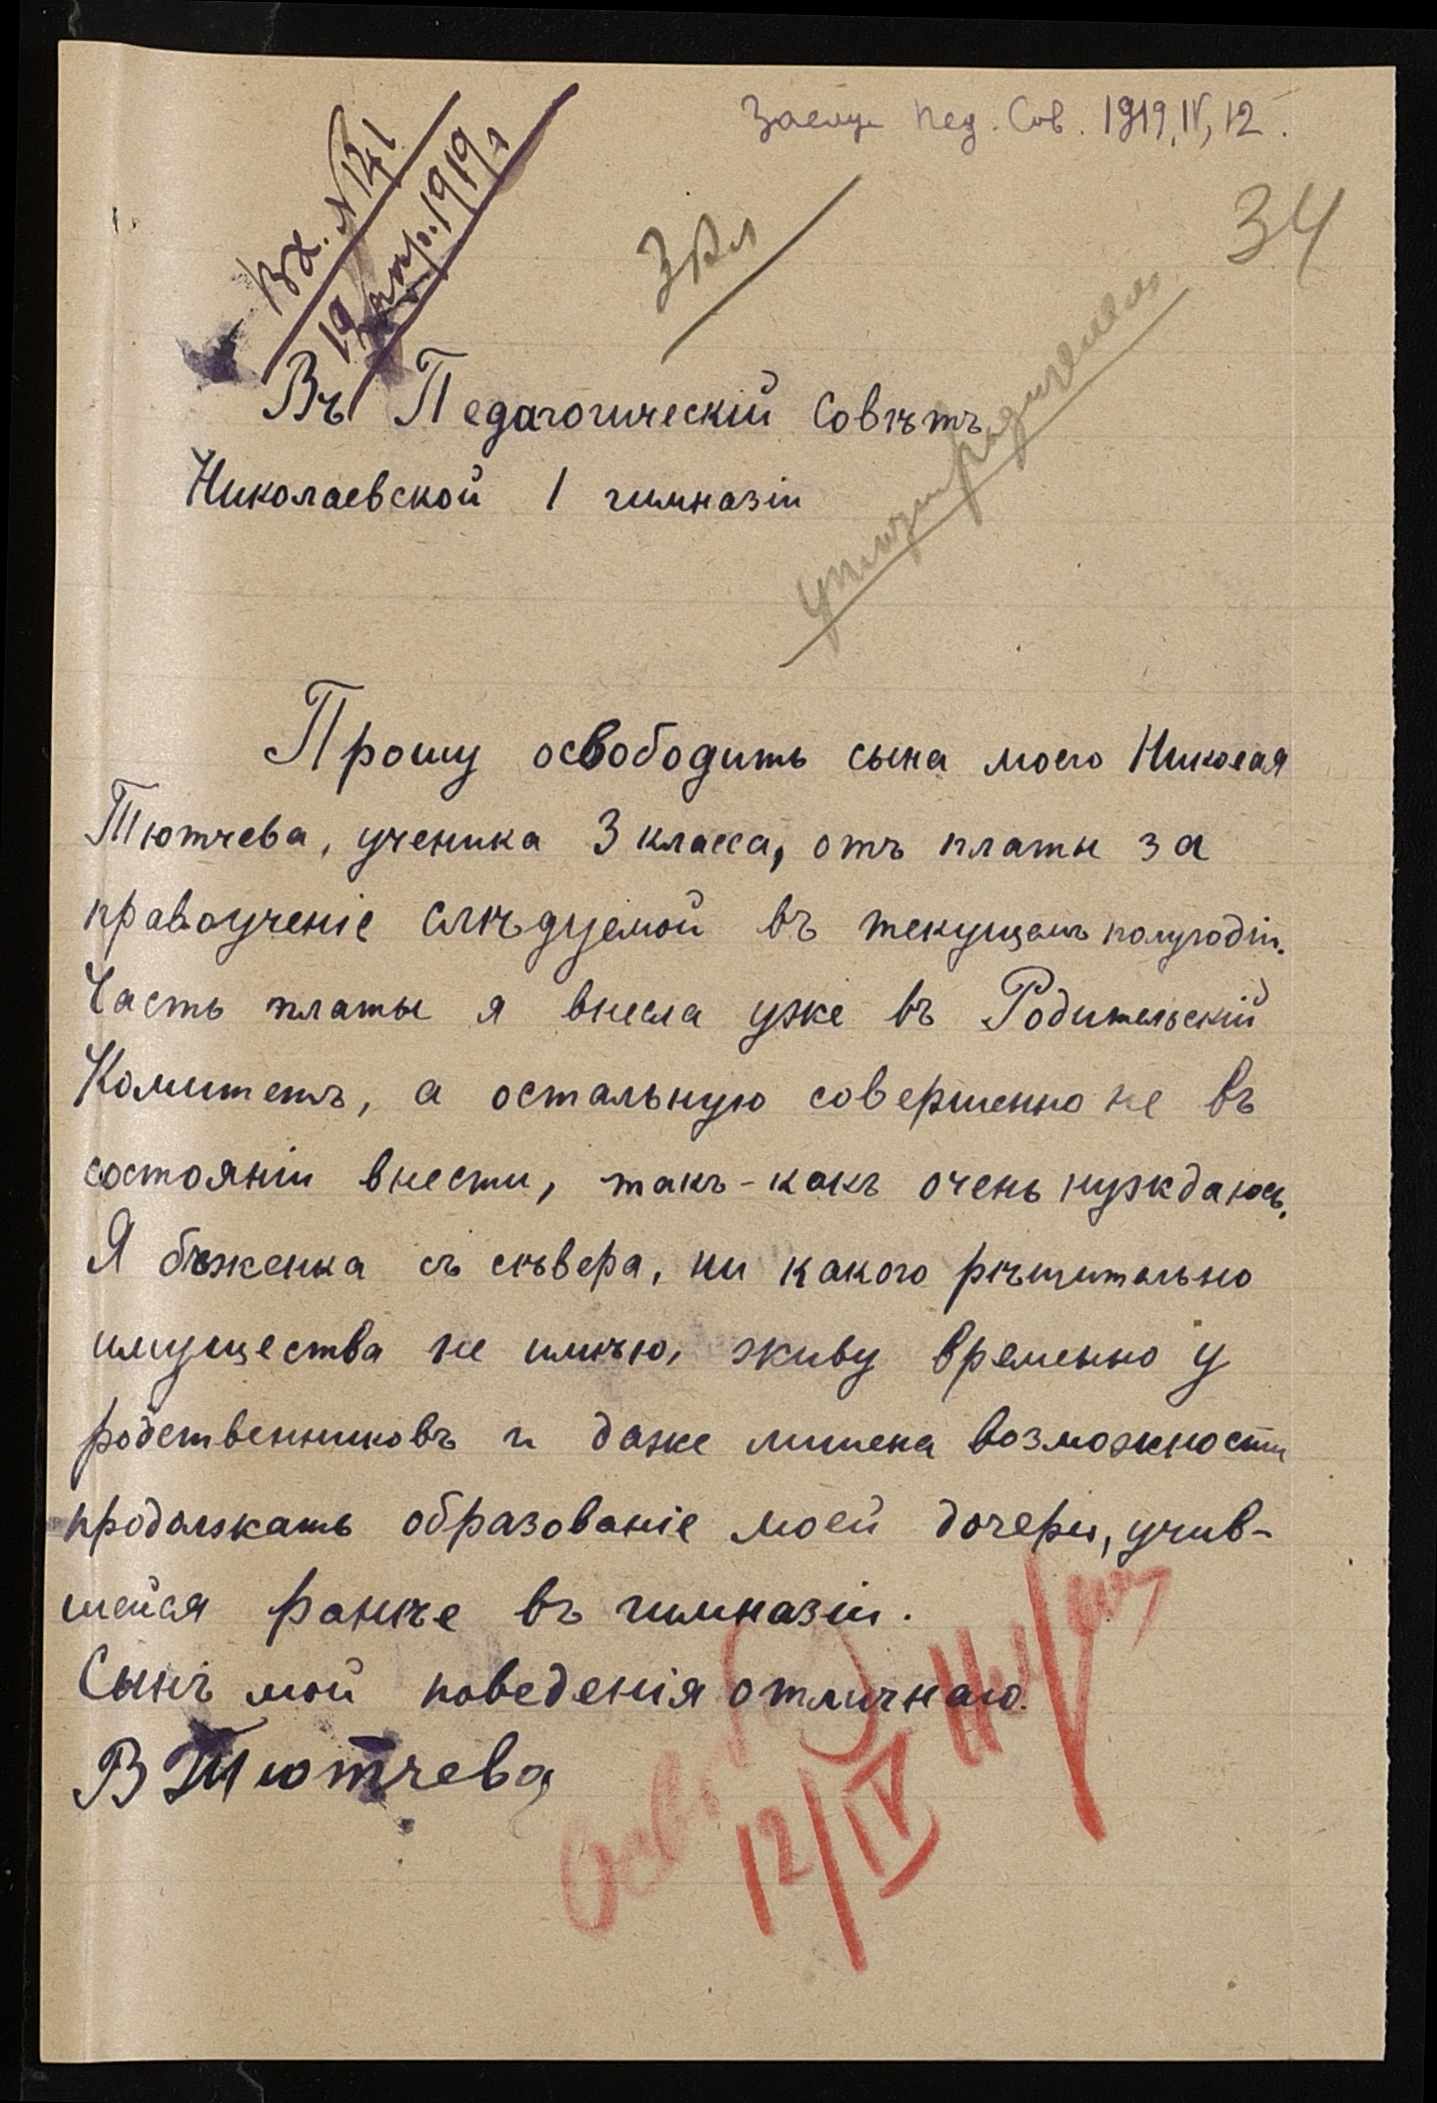 Засед. Пед. Сов. 1919, IV, 12.
34
Вх. №
19 апр. 1919 г
3 кл
Въ Педагогическій Совѣтъ
Николаевской 1 гимназіи
Прошу освободить сына моего Николая
Тютчева, ученика 3 класса, отъ платы за
правоученіе слѣдуемой въ текущемъ полугодіи.
Часть платы я внесла уже въ Родительскій
Комитетъ, а остальную совершенно не въ
состояніи внести, такъ-какъ очень нуждаюсь.
Я бѣженка съ сѣвера, ни какого рѣшительно
имущества не имѣю, живу временно у
родственниковъ и даже лишена возможности
продолжать образованіе моей дочери, учив-
шейся ранѣе въ гимназіи.
Сынъ мой поведенія отличнаго.
В Тютчева
12/IV